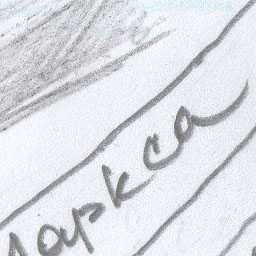 Маркса